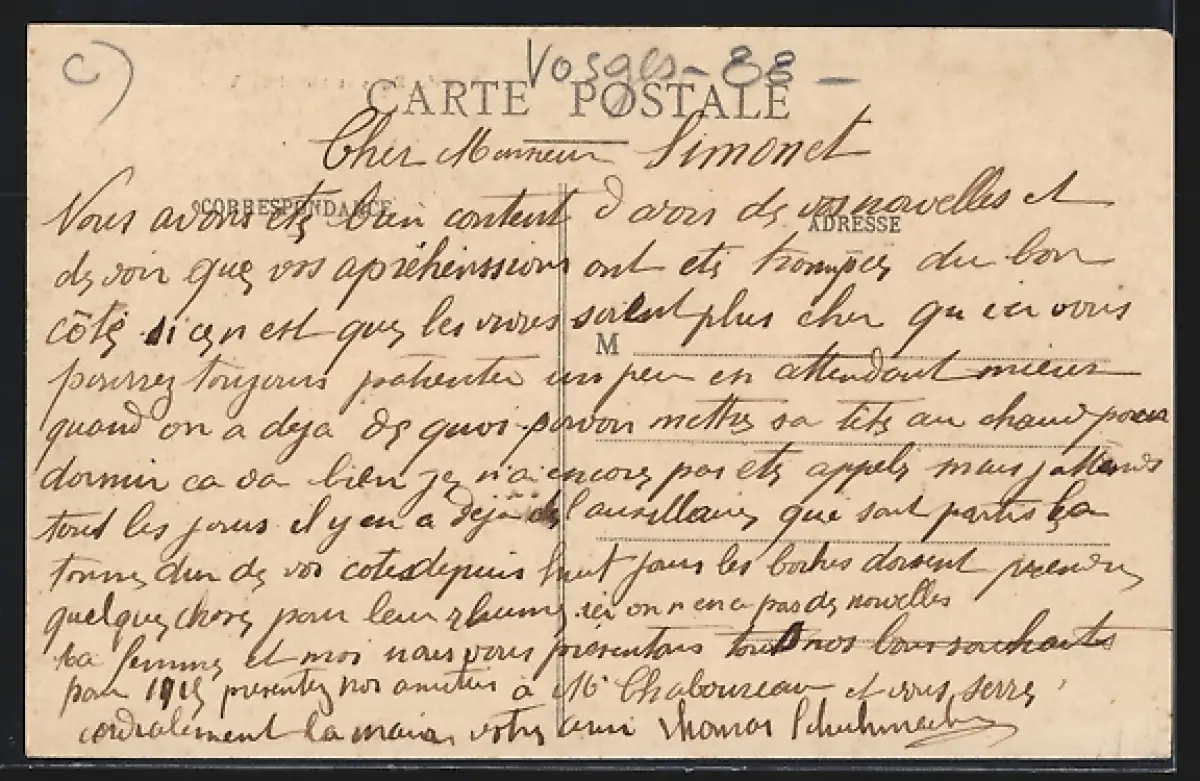 c)
Vosges - 88 -
CARTE POSTALE
Cher Monsieur Simonet
CORRESPONDANCE
ADRESSE
Nous avons etè bien content d avois de vos nouvelles et
de voir que vos apréhenssions ont etè trompés du bon
côté si ce n est que les vivres soient plus cher qu ici vous
M
pourrez toujours patienter un peu en attendant mieux
quand on a deja de quoi pouvoir mettre sa tète au chaud pour
dormir ca va bien je n ai encore pas etè appelé mais j attends
tout les jours il y en a dejà de l auxillaire que sont partis ca
tonne dur de vos cotes depuis huit jours les boches doivent prendre
quelque chose pour leur rhume ici on n en a pas de nouvelles
ma femme et moi nous vous présentons tout nos bons souhaits
pour 1915 presentez nos amitiés à Mr Chaboureau et vous serre
cordialement la main votre ami Thomas Schuhmacher